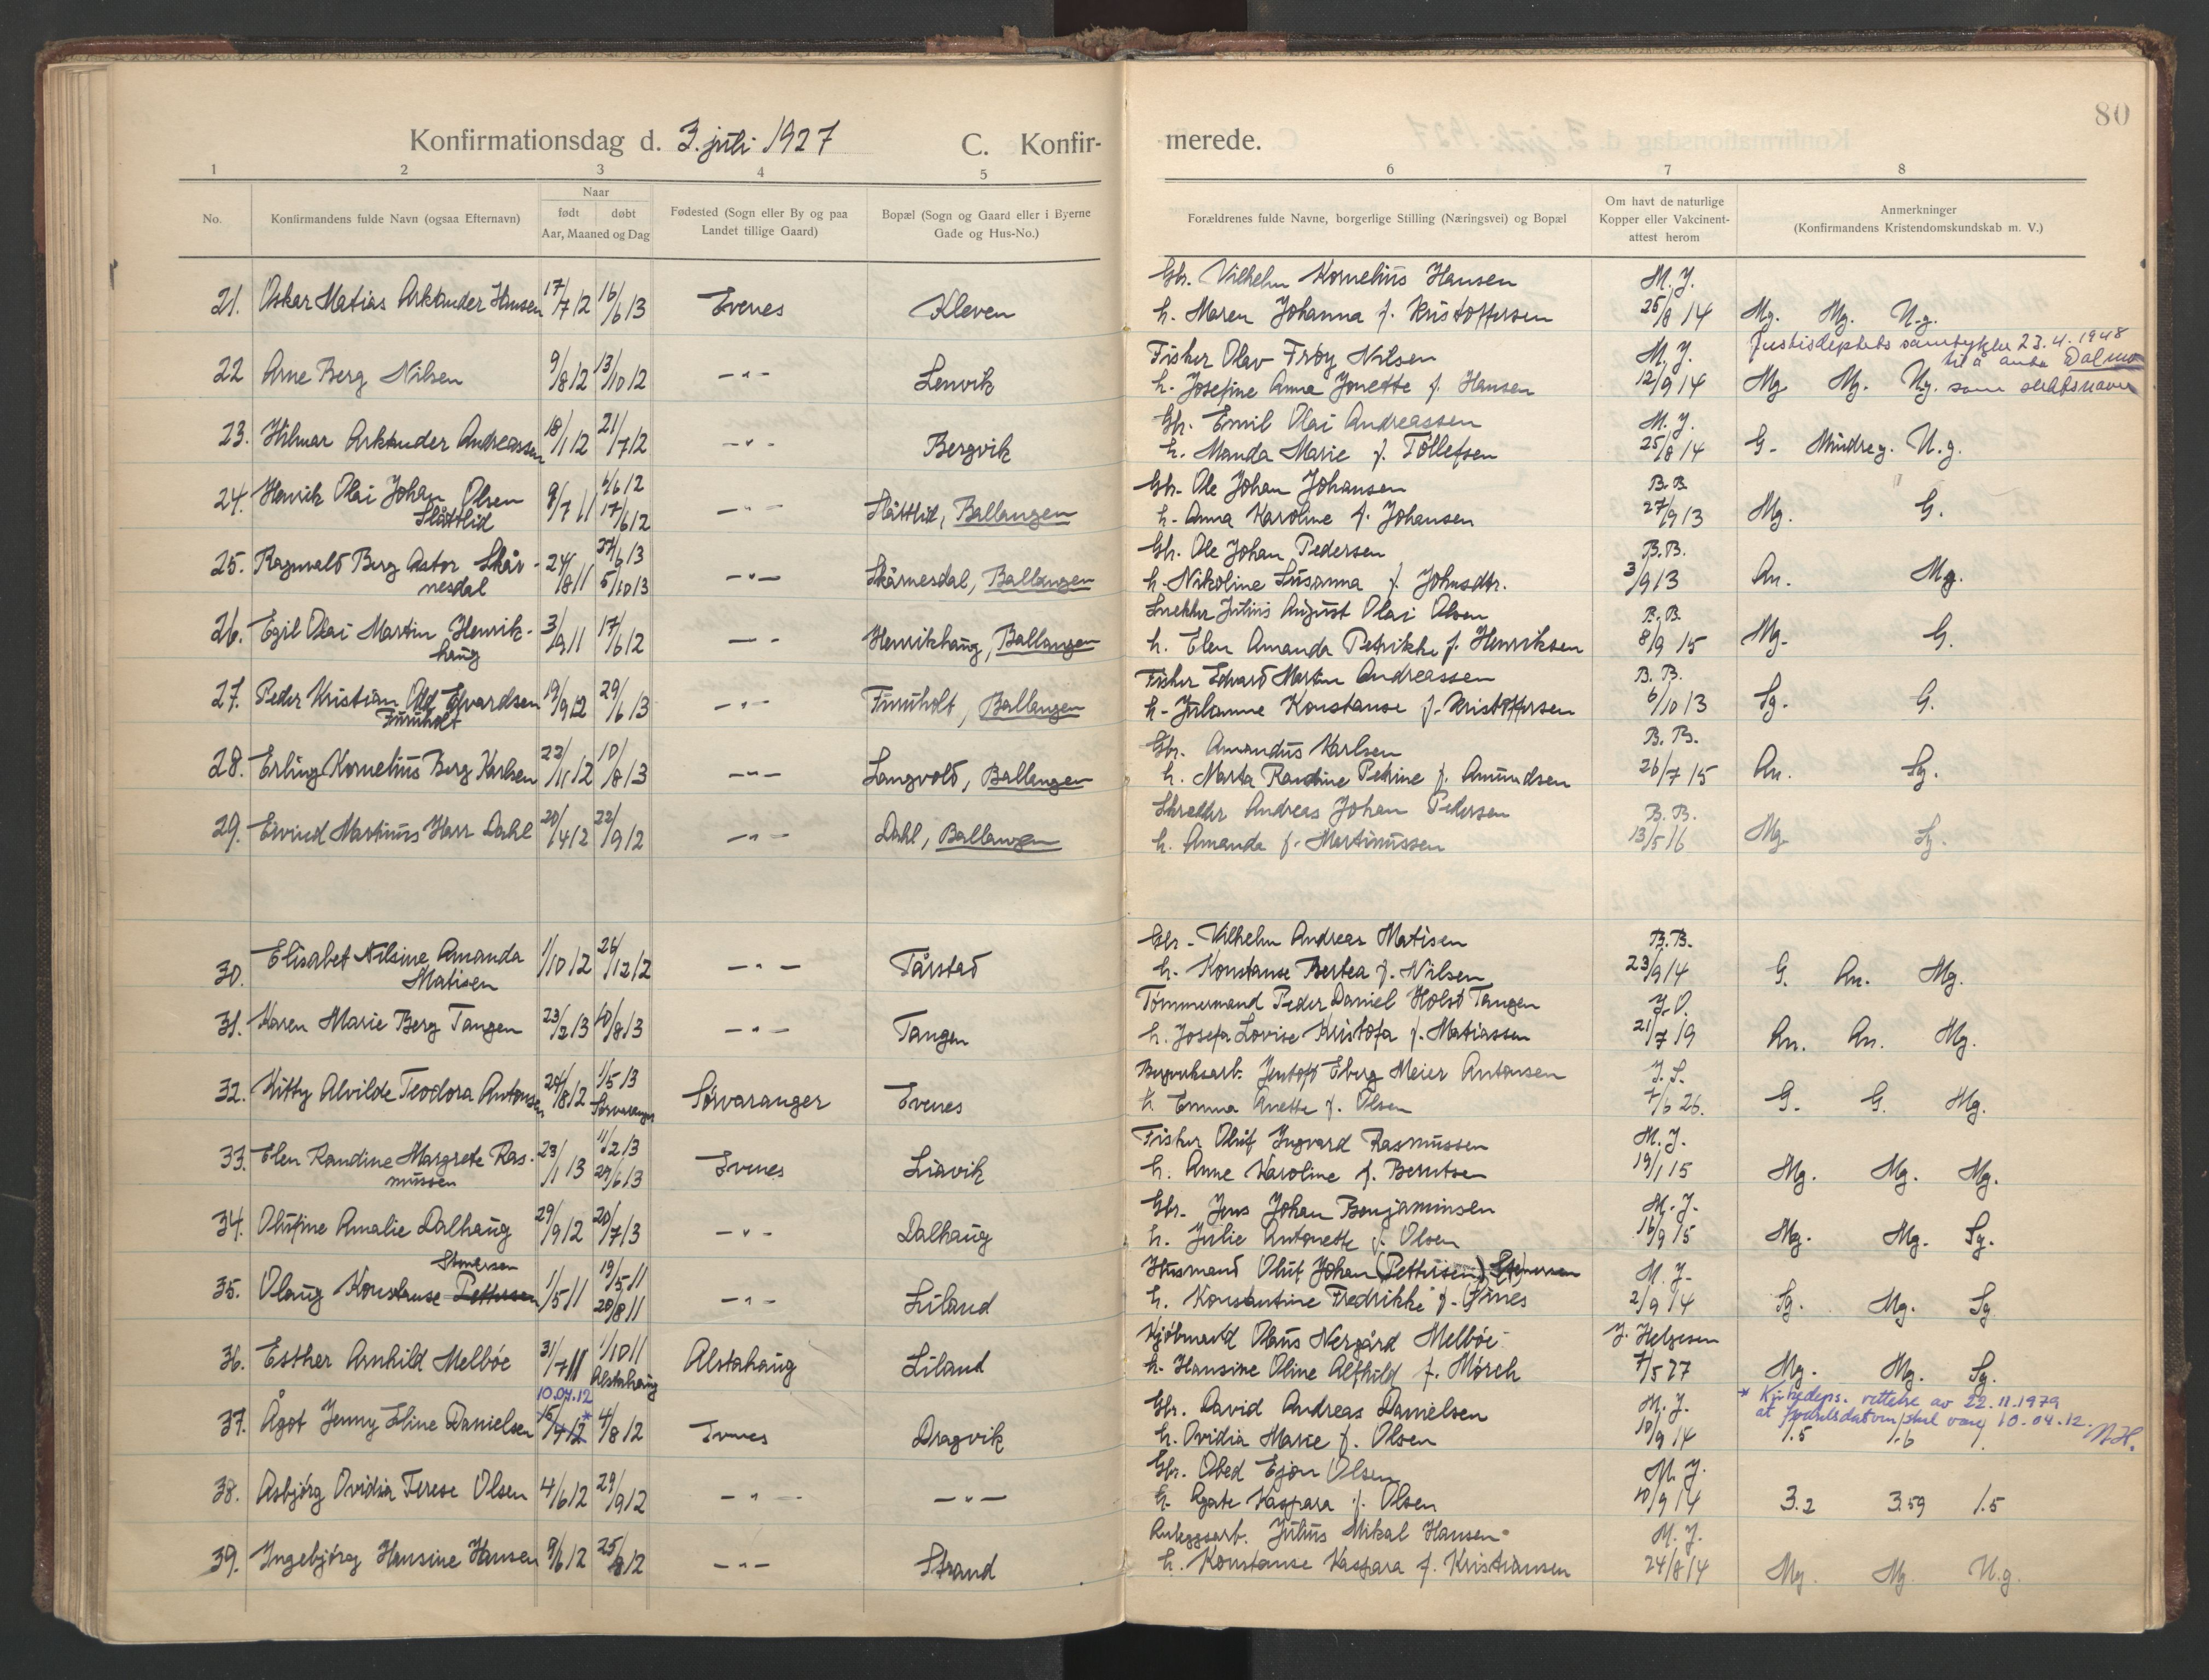 80
Konfirmationsdag d. 3. juli 1927 C. Konfirmerede.
1 2 3 4 5 6 7 8
No. Konfirmandens fulde Navn (ogsaa Efternavn) Naar født døbt Aar, Maaned og Dag Fødested (Sogn eller By og paa Landet tillige Gaard) Bopæl (Sogn og Gaard eller i Byerne Gade og Hus-No.) Forældrenes fulde Navne, borgerlige Stilling (Næringsvei) og Bopæl Om havt de naturlige Kopper eller Vakcinentattest herom Anmerkninger (Konfirmandens Kristendomskundskab m. V.)
21. Oskar Matias Arktander Hansen 17/7 12 16/6 13 Evenes Kleven Gbr. Vilhelm Kornelius Hansen M. J.
h. Maren Johanna f. Kristoffersen 25/8 14 Mg. Mg. N.g.
Justisdeptets samtykke 23.4.1948
22 Arne Berg Nilsen 9/8 12 13/10 12 -"- Lenvik Fisker Olav Frøy Nilsen M. J. til å anta Dalmo
h. Josefine Anna Jonette f. Hansen 12/9 14 Mg. Mg. Ng. som slektsnavn
23. Hilmar Arktander Andreassen 18/1 12 21/7 12 -"- Bergvik Gbr. Emil Olai Andreassen M. J.
h. Manda Marie f. Tollefsen 25/8 14 G. Mindre g. N.g.
24. Henrik Olai Johan Olsen 9/7 11 6/6 12 -"- Slåttlid, Ballangen Gbr. Ole Johan Johansen B. B.
Slåttlid 17/6 12 h. Anna Karoline f. Johansen 27/9 13 Mg. G.
25. Ragnvald Berg Astor Skår- 24/8 11 27/6 13 -"- Skårnesdal, Ballangen Gbr. Ole Johan Pedersen B. B.
nesdal 5/10 13 h. Nikoline Susanna f. Johnsdtr. 3/9 13 An. Mg.
26. Egil Olai Martin Henrik- 3/9 11 17/6 12 -"- Henrikhaug, Ballangen Snekker Julius August Olai Olsen B. B.
haug h. Elen Amanda Petrikke f. Henriksen 8/9 15 Mg. G.
27. Peder Kristian Edvardsen 19/9 12 29/6 13 -"- Furuholt, Ballangen Fisker Edvard Martin Andreassen B. B.
Furuholt h. Julianne Konstanse f. Kristoffersen 6/10 13 Sg. G.
28. Erling Kornelius Berg Karlsen 22/11 12 10/8 13 -"- Langvold, Ballangen Gbr. Amandus Karlsen B. B.
h. Marta Randine Petrine f. Amundsen 26/7 15 An. Sg.
29. Eivind Martinus Harr Dahl 20/4 12 22/9 12 -"- Dahl, Ballangen Skredder Andreas Johan Pedersen B. B.
h. Amanda f. Martinussen 13/5 16 Mg. Sg.
30. Elisabet Nilsine Amanda 1/10 12 26/12 12 -"- Tårstad Gbr. Vilhelm Andreas Matisen B. B.
Matisen h. Konstanse Bertea f. Nilsen 23/9 14 G. An. Mg.
31. Karen Marie Berg Tangen 23/2 13 10/8 13 -"- Tangen Tømmermand Peder Daniel Holst Tangen J. O.
h. Josefa Lovise Kristofa f. Matiassen 21/7 19 An. An. Mg.
32. Kitty Alvilde Teodora Antonsen 24/8 12 1/5 13 Sørvaranger Sørvaranger Evenes Bergverksarb. Jentoft Eberg Meier Antonsen J. S.
h. Emma Anette f. Olsen 7/6 26. G. G. Mg.
33. Elen Randine Margrete Ras- 23/1 13 11/2 13 Evenes Liavik Fisker Oluf Ingvard Rasmussen M. J.
mussen 29/6 13 h. Anne Karoline f. Berntsen 19/1 15 Mg. Mg. Mg.
34. Olufine Amalie Dalhaug 29/9 12 20/7 13 -"- Dalhaug Gbr. Jens Johan Benjaminsen M. J.
h. Julie Antonette f. Olsen 16/9 15 Mg. Mg. Sg.
Stenersen
35. Olaug Konstanse Pettersen 1/5 11 19/5 11 -"- Liland Husmand Oluf Johan (Pettersen) Stenersen M. J.
20/8 11 h. Konstantine Fredrikke f. Fines 2/9 14 Sg. Mg. Sg.
36. Esther Arnhild Melbøe 31/7 11 1/10 11 Alstahaug Alstahaug Liland Kjøbmand Olaus Nergård Melbøe J. Helgesen
h. Hansine Oline Alfhild f. Mørch 7/5 27 Mg. Mg. Sg.
10.04.12 * Kirkedeps. rettelse av 22.11.1979
37. Ågot Jenny Eline Danielsen 15/4 12 * 4/8 12 Evenes Dragvik Gbr. David Andreas Danielsen M. J. at fødselsdatoen skal være 10.04.12.
h. Ovidia Marie f. Olsen 10/9 14 1.5 1.6 1.
38. Asbjørg Ovidia Terese Olsen 4/6 12 29/9 12 -"- -"- Gbr. Obed Ejon Olsen M. J.
h. Agate Kaspara f. Olsen 10/9 14 3.2 3.59 1.5
39. Ingebjørg Hansine Hansen 9/6 12 25/8 12 -"- Strand Anleggsarb. Julius Mikal Hansen M. J.
h. Konstanse Kaspara f. Kristiansen 24/8 14 Mg. Mg. N.g.